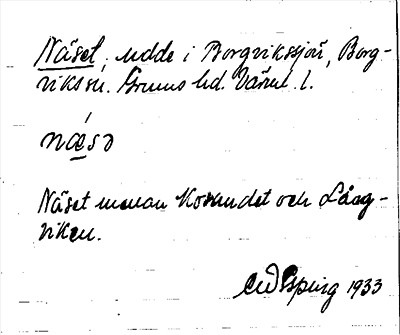 Näset, udde i Borgvikssjön, Borg-
vikssn. Grums hd. Värml. l.
næsə
Näset mellan Korsundet och Lång-
viken.
1933